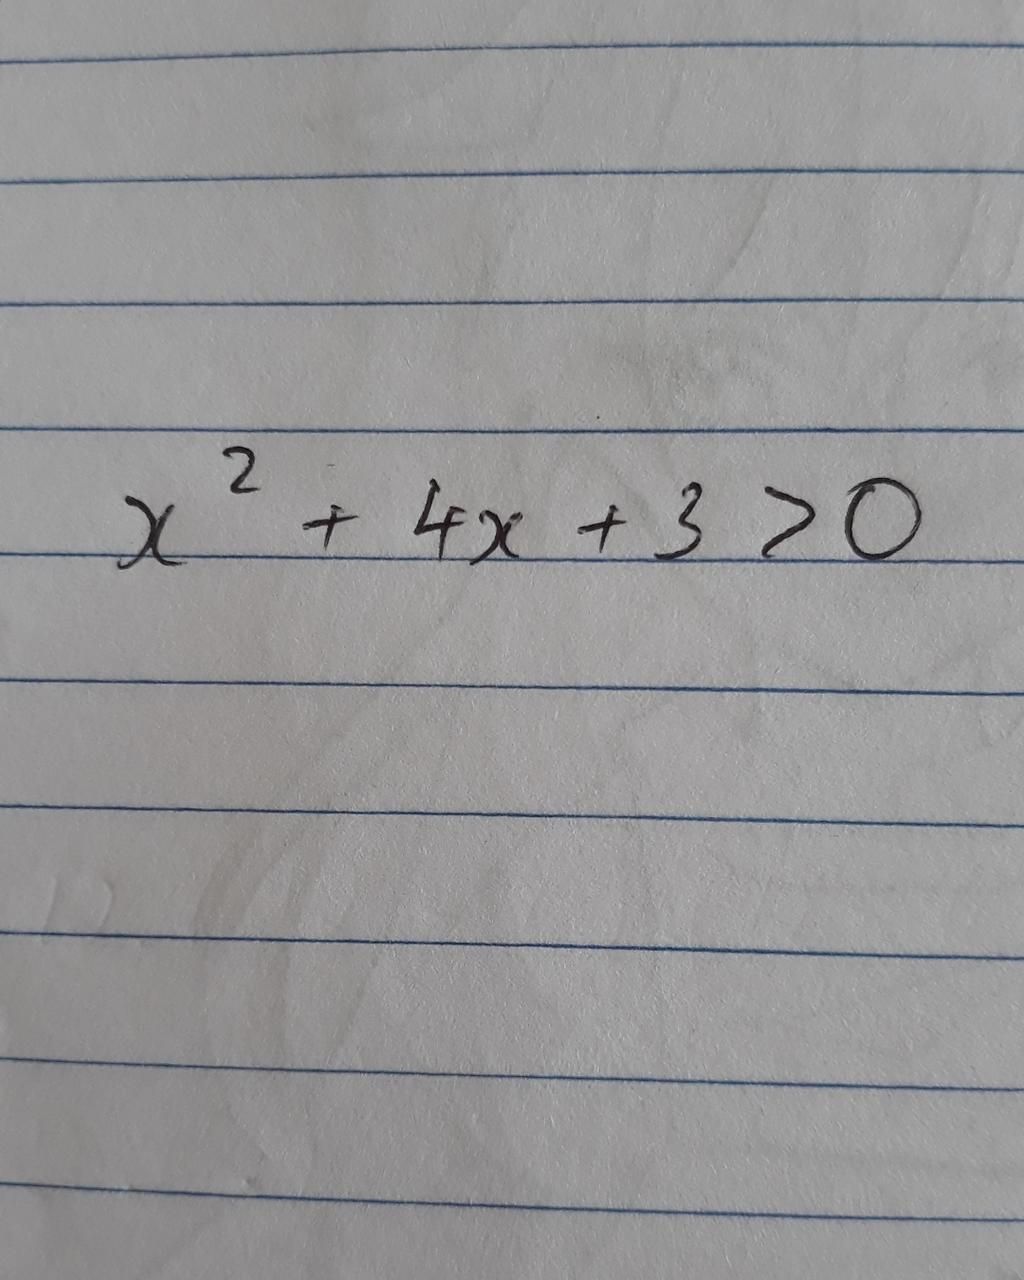 x² + 4x + 3 > 0